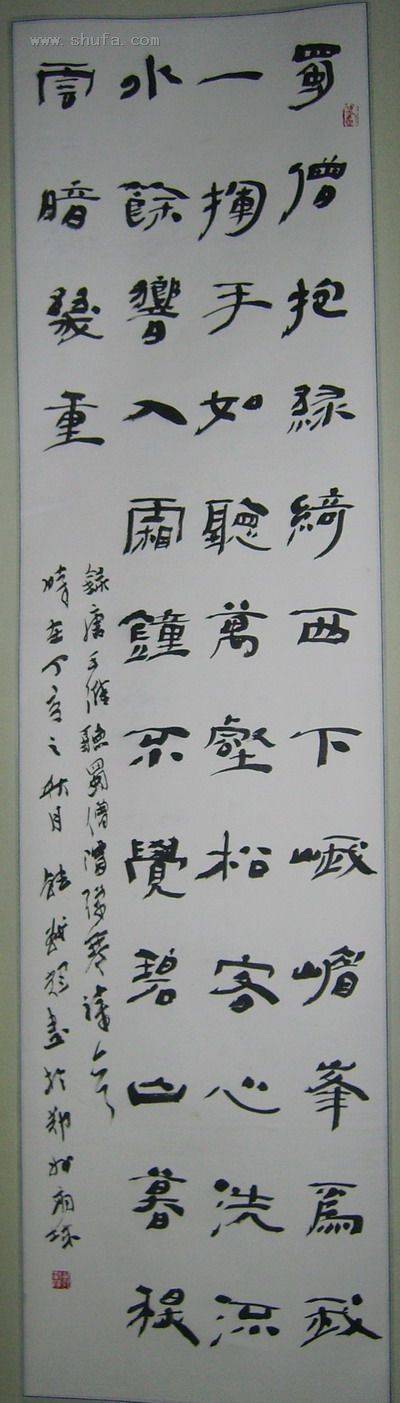 www.shufa.com
蜀僧抱綠綺西下峨嵋峯爲我
一揮手如聽萬壑松客心洗流
水餘響入霜鐘不覺碧山暮秋
雲暗幾重
錄唐聽蜀僧濬彈琴詩
時在丁亥之秋月書於鄭州商城